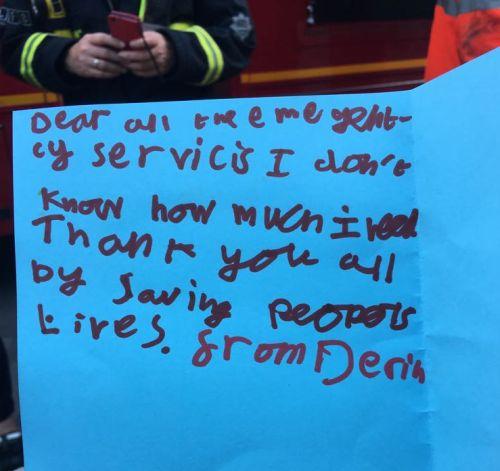 Dear all the emergent-
cy servicis I don't
know how much i need
Thank you all
by saving peopols
lives. from Derin